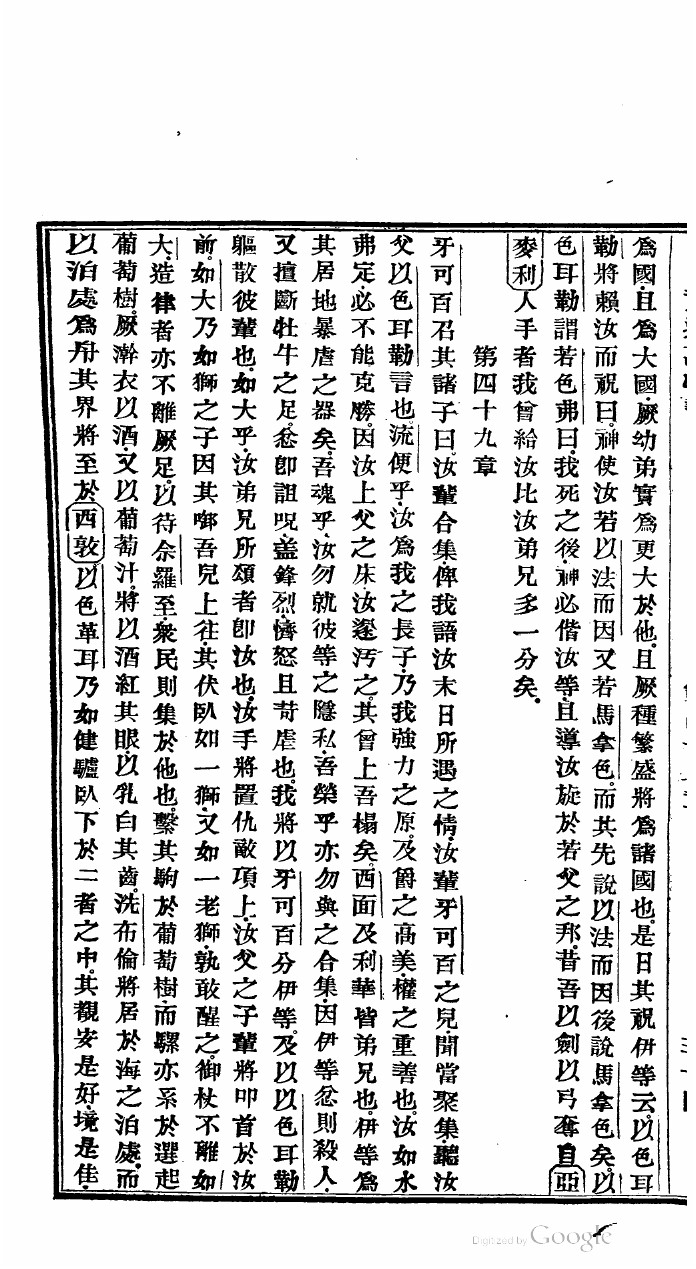 為國、且為大國、厥幼弟實為更大於他、且厥種繁盛將為諸國也、是日其祝伊等云、以色耳
勒將賴汝而祝曰、神使汝若以法而因又若馬拿色、而其先說以法而因後說馬拿色矣、以
色耳勒謂若色弗曰、我死之後、神必偕汝等、且導汝旋於若父之邦、昔吾以劍以弓奪自亞
麥利人手者我曾給汝比汝弟兄多一分矣、
第四十九章
牙可百召其諸子曰、汝輩合集、俾我語汝末日所遇之情、汝輩牙可百之兒聞當聚集、聽汝
父以色耳勒言也、流便乎、汝為我之長子、乃我強力之原、及爵之高美、權之重善也、汝如水
弗定、必不能克勝、因汝上父之床汝遂污之、其曾上吾榻矣、西面及利華皆弟兄也、伊等為
其居地暴虐之器矣、吾魂乎、汝勿就彼等之隱私、吾榮乎亦勿與之合集、因伊等忿則殺人、
又擅斷牡牛之足、忿即詛呪、蓋鋒烈、懠怒且苛虐也、我將以牙可百分伊等、及以以色耳勒
軀散彼輩也、如大乎、汝弟兄所頌者即汝也、汝手將置仇敵項上、汝父之子輩將叩首於汝
前、如大乃如獅之子因其啣吾兒上往、其伏臥如一獅、又如一老獅、孰敢醒之、御杖不離如
大、造律者亦不離厥足、以待佘羅至、衆民則集於他也、繫其駒於葡萄樹、而驛亦系於選起
葡萄樹、厥澣衣以酒、又以葡萄汁、將以酒紅其眼、以乳白其齒、洗布倫將居於海之泊處、而
以泊處為舟其界將至於西敦、以色革耳乃如健驢臥下於二者之中、其觀安是好、境是佳、
Digitized by Google